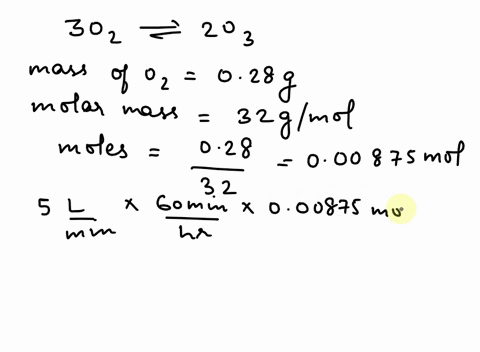 3O₂ ⇌ 2O₃
mass of O₂ = 0.28g
molar mass = 32g/mol
moles = 0.28/32 = 0.00875 mol
5 L/min × 60min/hr × 0.00875 mo